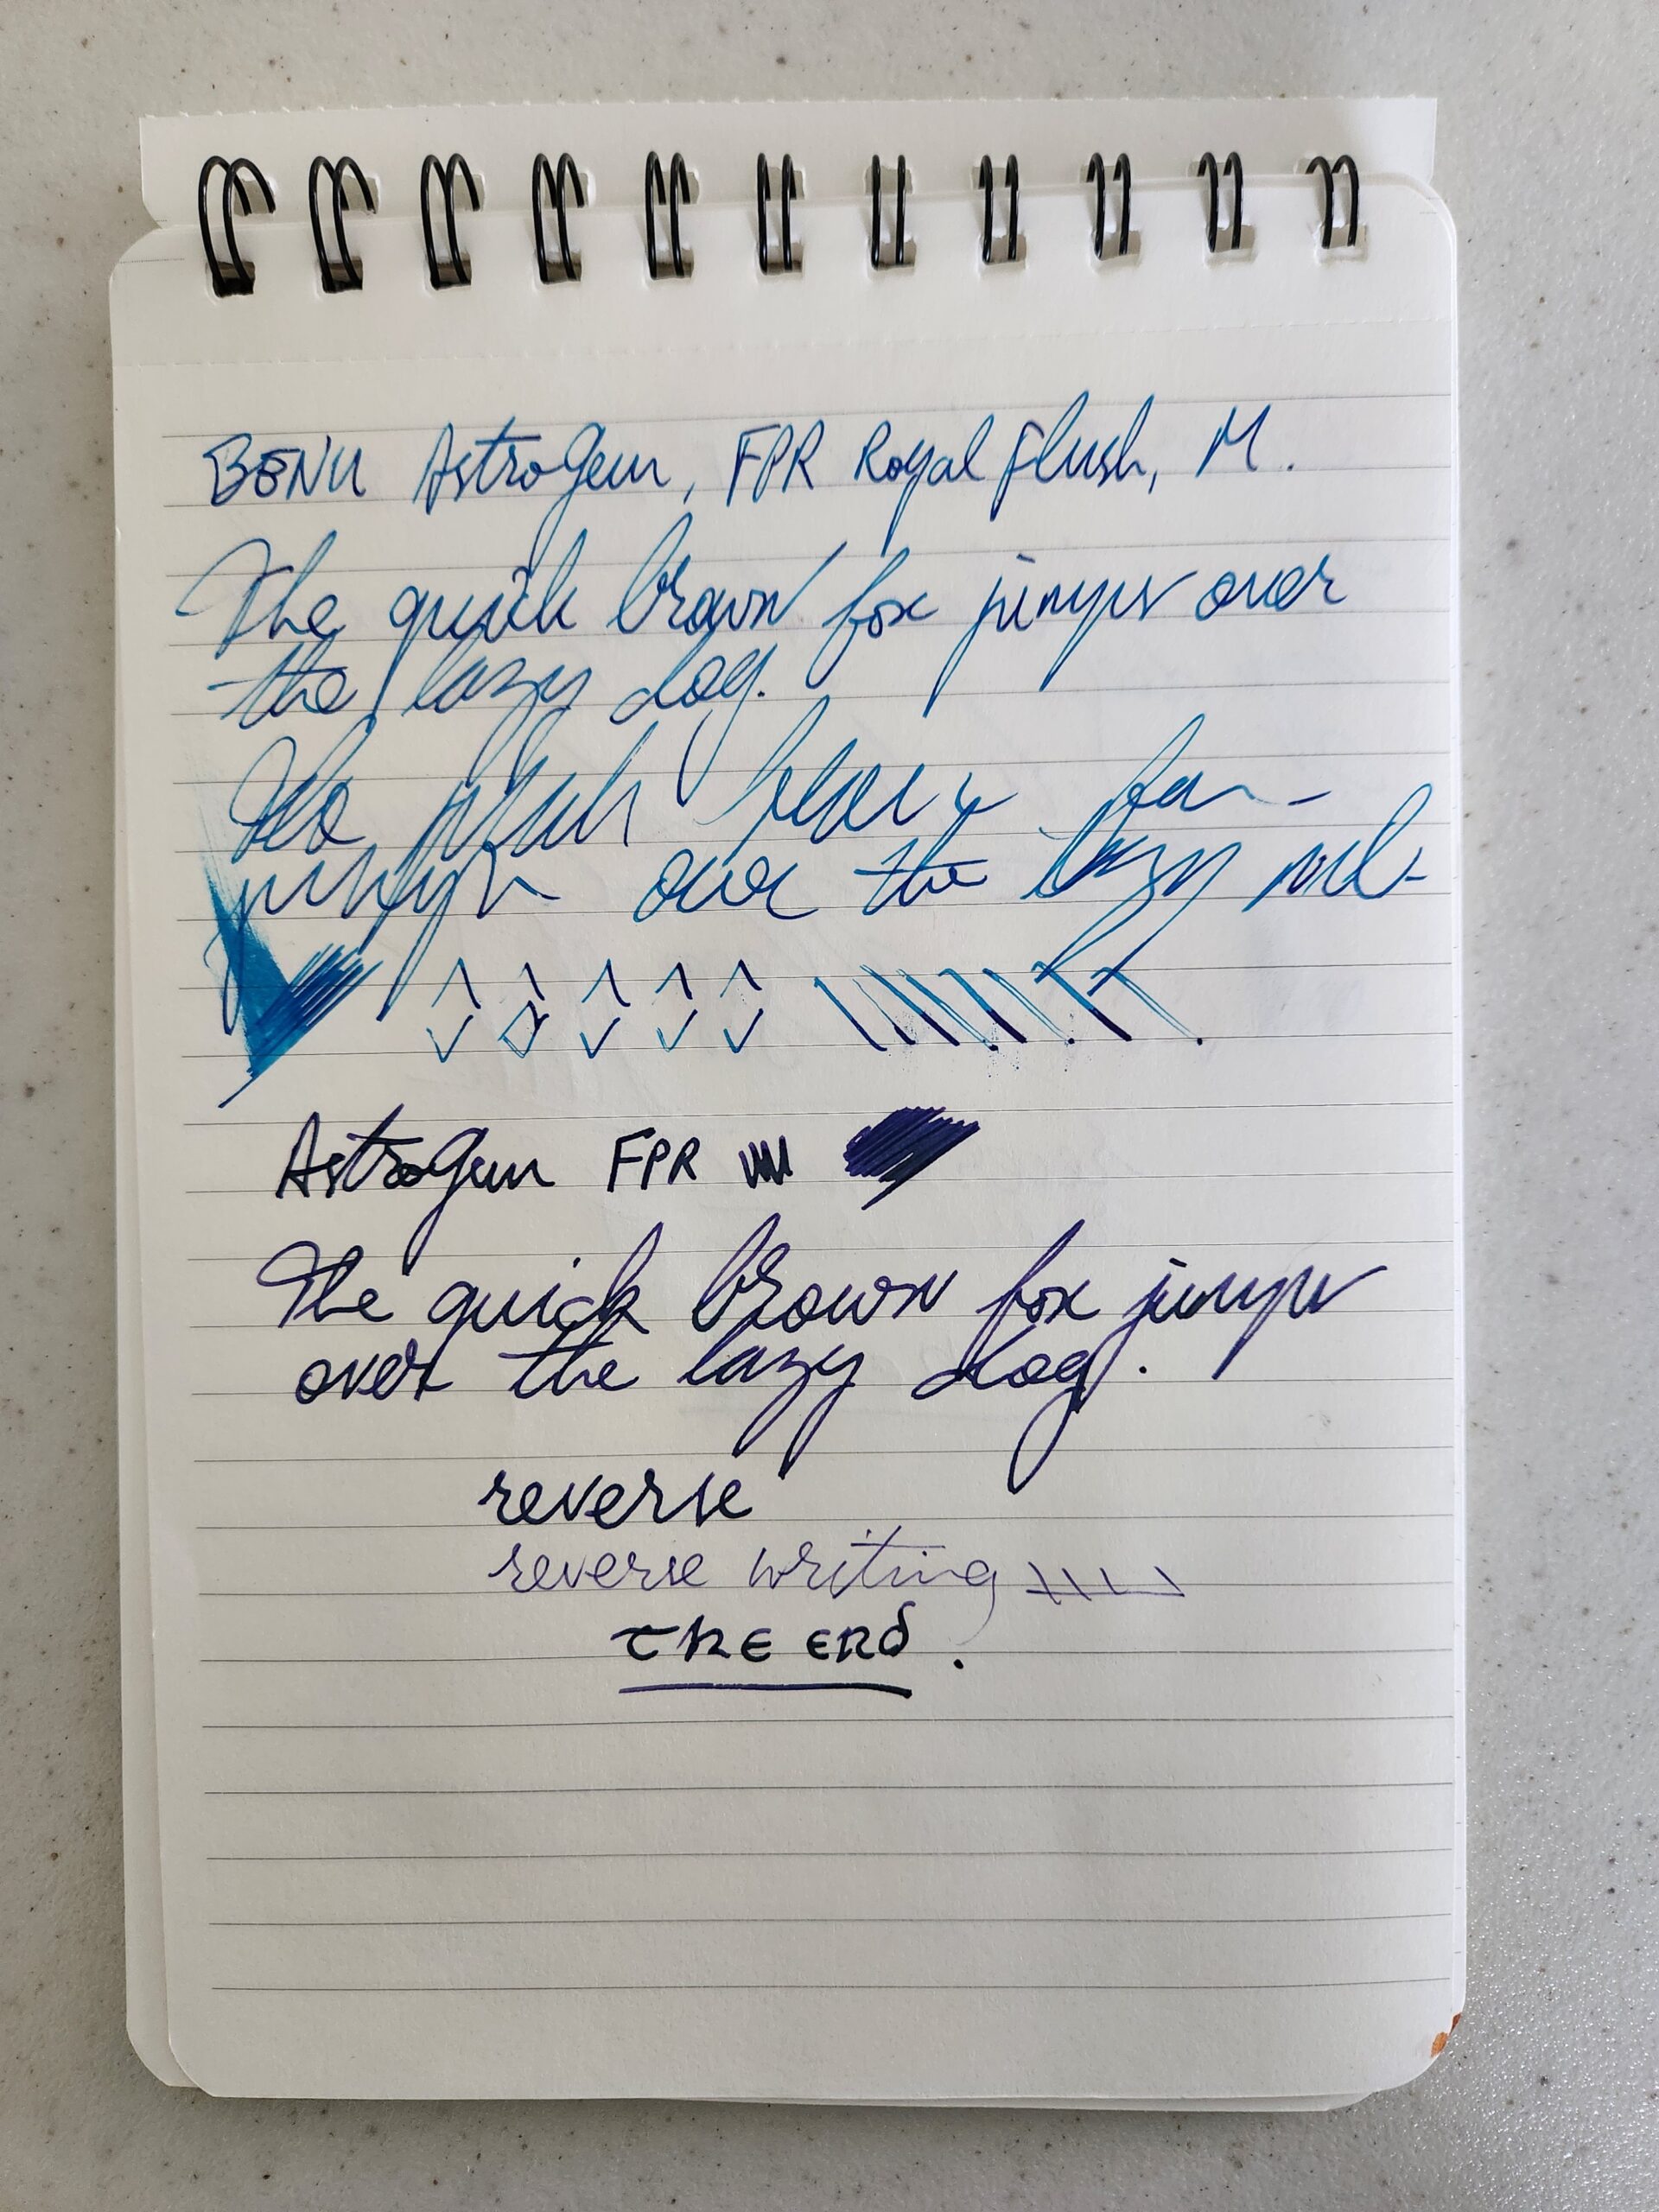 BENU AstroGem, FPR Royal Flush, M.
The quick brown fox jumps over
the lazy dog.
over the lazy
AstroGem FPR
The quick brown fox jumps
over the lazy dog.
reverse
reverse writing
THE END.